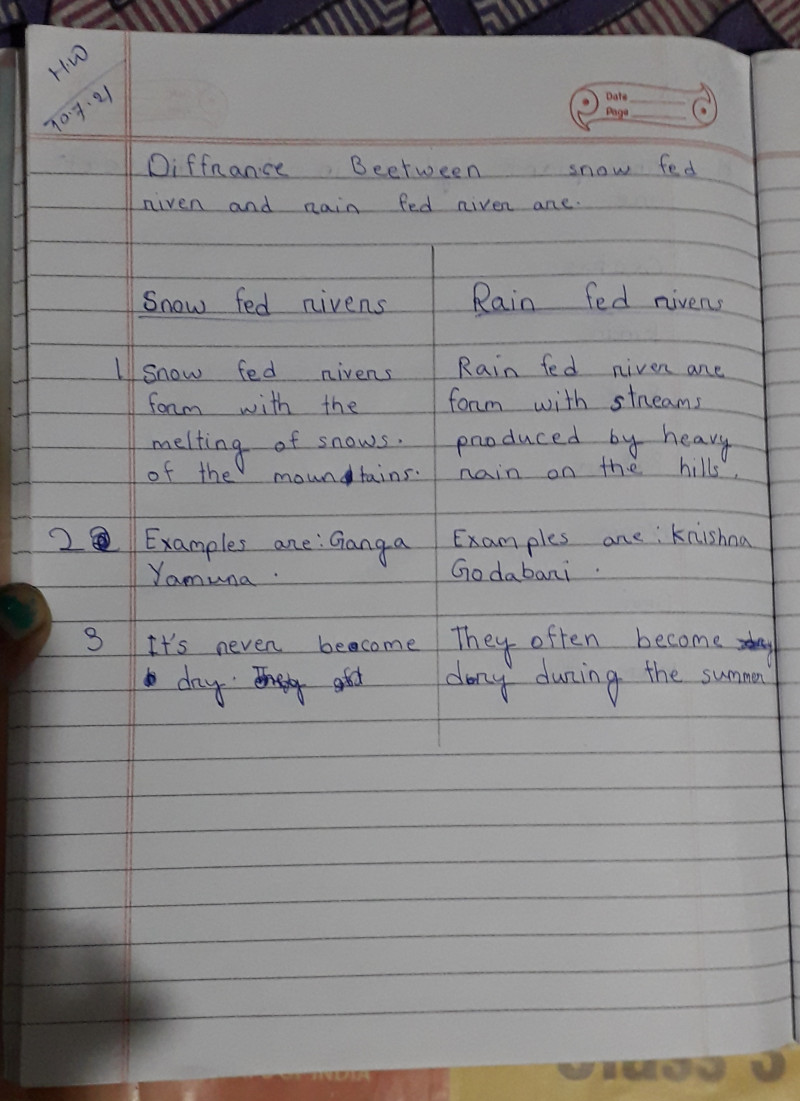 H.W
10.7.21
Date
Page
Diffrance Beetween snow fed
river and rain fed river are.
Snow fed rivers
Rain fed rivers
1 Snow fed rivers
form with the
melting of snows.
of the moundtains.
Rain fed river are
form with streams
produced by heavy
rain on the hills.
2 Examples are: Ganga
Yamuna.
Examples are: Krishna
Godabari.
3 It's never beecome
dry.
They often become
dry during the summer
OF INDIA
Class 3